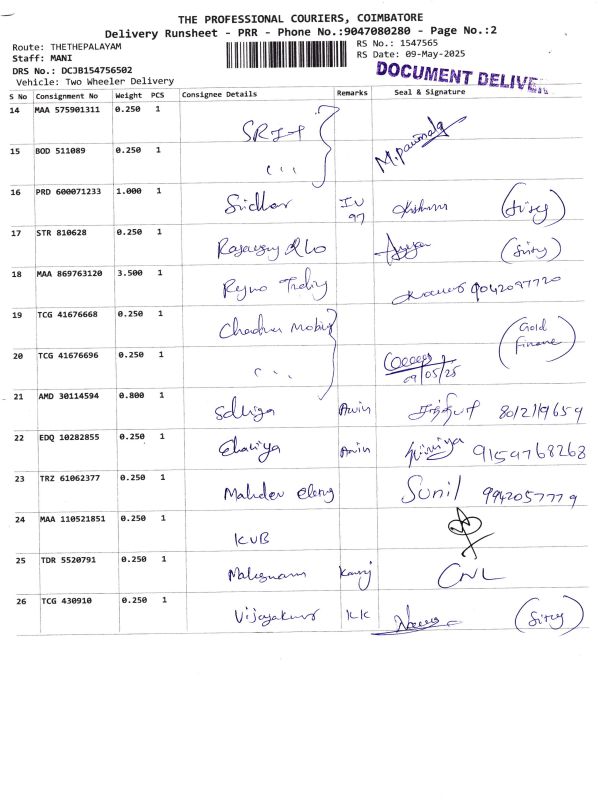 THE PROFESSIONAL COURIERS, COIMBATORE
Delivery Runsheet - PRR - Phone No.:9047080280 - Page No.:2
Route: THETHEPALAYAM
Staff: MANI
DRS No.: DCJB154756502
Vehicle: Two Wheeler Delivery
RS No.: 1547565
RS Date: 09-May-2025
DOCUMENT DELIVE
S No Consignment No Weight PCS Consignee Details Remarks Seal & Signature
14 MAA 575901311 0.250 1
15 BOD 511089 0.250 1 M. Parimala
16 PRD 600071233 1.000 1 Sridhar IU 97
17 STR 810628 0.250 1
18 MAA 869763120 3.500 1
19 TCG 41676668 0.250 1 (Gold Finance)
20 TCG 41676696 0.250 1 09/05/25
21 AMD 30114594 0.800 1
22 EDQ 10282855 0.250 1 9159768268
23 TRZ 61062377 0.250 1 Mahdev Sunil 9942057779
24 MAA 110521851 0.250 1 KVB
25 TDR 5520791 0.250 1 CNL
26 TCG 430910 0.250 1 KK